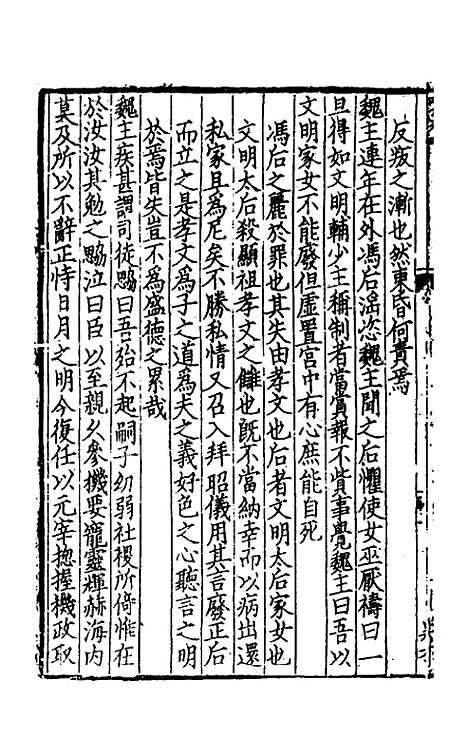 反叛之漸也然東昏何責焉
魏主連年在外馮后滛恣魏主聞之后懼使女巫厭禱曰一
旦得如文明輔少主稱制者當賞報不貲事覺魏主曰吾以
文明家女不能廢但虛置宮中有心庶能自死
馮后之麗於罪也其失由孝文也后者文明太后家女也
文明太后殺顯祖孝文之讎也旣不當納幸而以病出還
私家且為尼矣不勝私情又召入拜昭儀用其言廢正后
而立之是孝文為子之道為夫之義好色之心聽言之明
於焉皆失豈不為盛德之累哉
魏主疾甚謂司徒勰曰吾殆不起嗣子幼弱社稷所倚惟在
於汝汝其勉之勰泣曰臣以至親乆參機要寵靈輝赫海内
莫及所以不辭正恃日月之明今復任以元宰揔握機政取